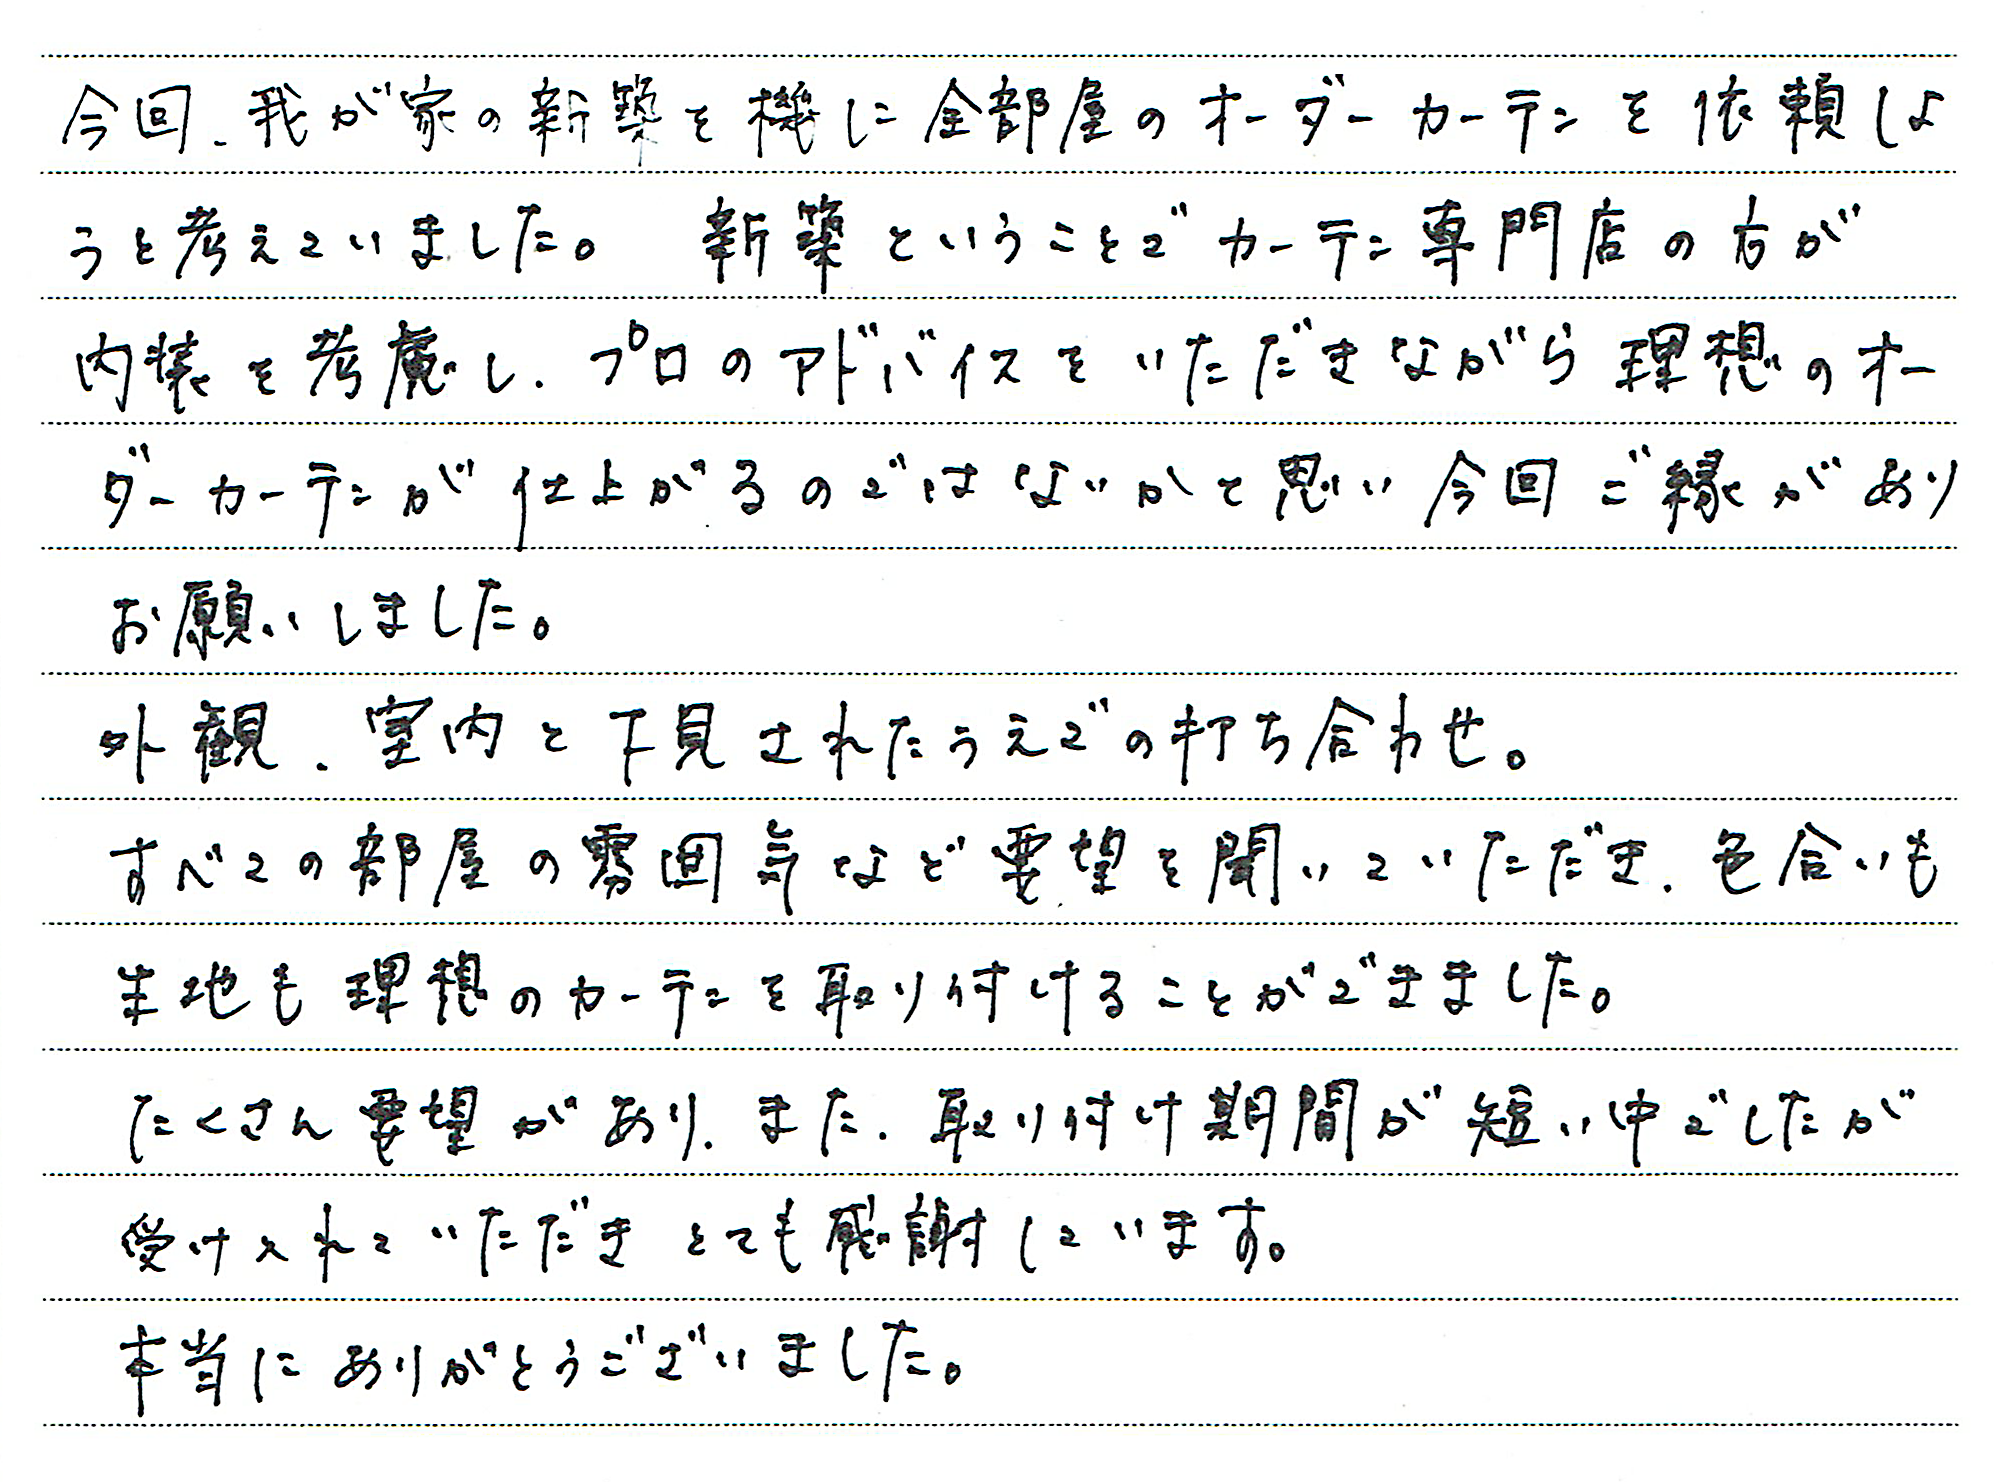 今回、我が家の新築を機に全部屋のオーダーカーテンを依頼しよ
うと考えていました。 新築ということでカーテン専門店の方が
内装を考慮し、プロのアドバイスをいただきながら理想のオー
ダーカーテンが仕上がるのではないかと思い今回ご縁があり
お願いしました。
外観、室内と下見されたうえでの打ち合わせ。
すべての部屋の雰囲気など要望を聞いていただき、色合いも
生地も理想のカーテンを取り付けることができました。
たくさん要望があり、また、取り付け期間が短い中でしたが
受け入れていただきとても感謝しています。
本当にありがとうございました。